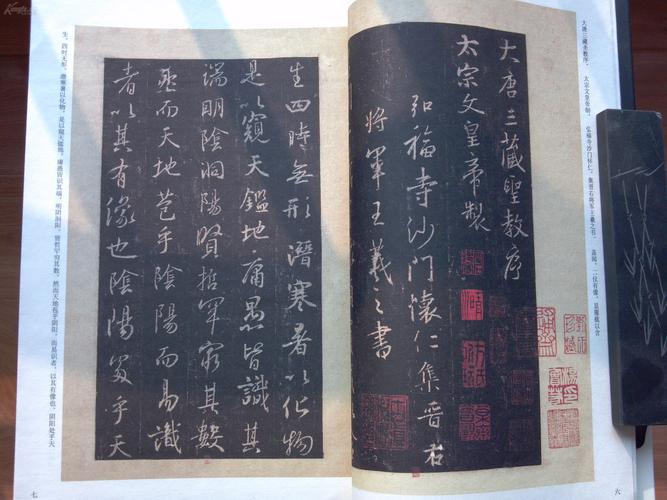 大唐三藏圣教序。 太宗文皇帝制。 弘福寺沙门怀仁集晋右将军王羲之书。 盖闻二仪有像,显覆载以含
大唐三藏聖教序
太宗文皇帝製
弘福寺沙門懷仁集晉右
將軍王羲之書
六
生四時無形潛寒暑以化物
是以窺天鑑地庸愚皆識其
端明陰洞陽賢哲罕窮其數
然而天地苞乎陰陽而易識
者以其有像也陰陽處乎天
生。四时无形,潜寒暑以化物。是以窥天鉴地,庸愚皆识其端;明阴洞阳,贤哲罕穷其数。然而天地苞乎阴阳,而易识者,以其有像也;阴阳处乎天
七